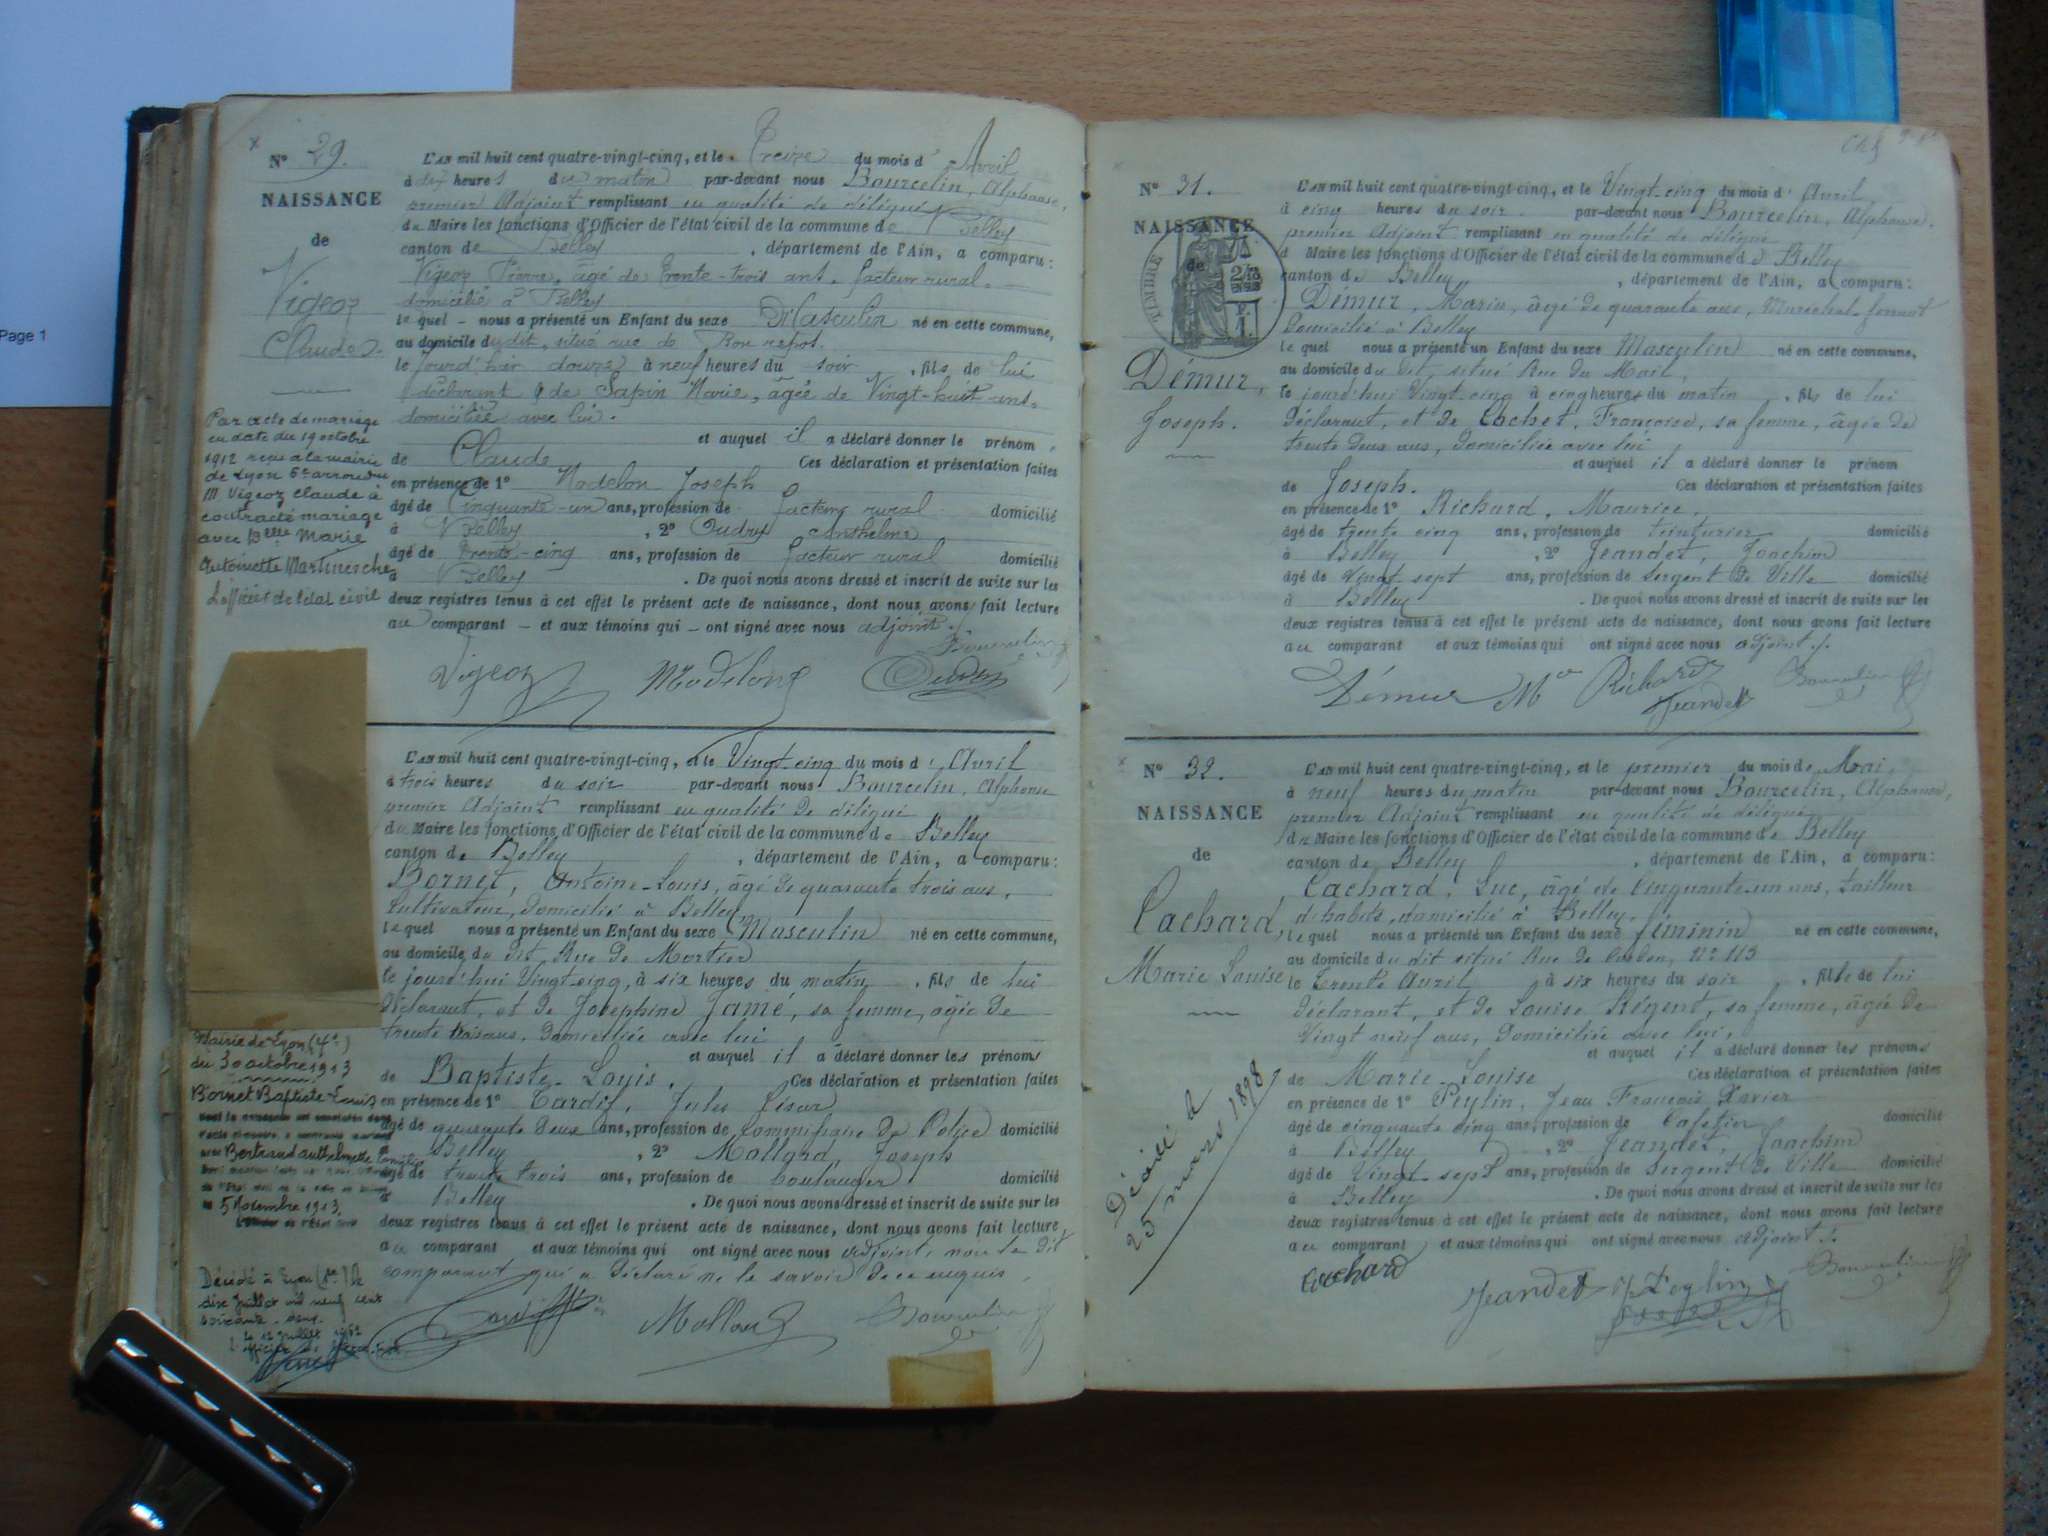 Page 1
N° 29.
NAISSANCE
de
Vigeoz
Claude.
Par acte de mariage
en date du 19 octobre
1912 reçu à la mairie
de Lyon 6e arrondt
M Vigeoz Claude à
contracté mariage
avec Delle Marie
Antoinette
L'officier de l'état civil
L'AN mil huit cent quatre-vingt-cinq, et le Treize du mois d'Avril
à dix heures du matin par-devant nous Bourcelin, Alphonse,
premier Adjoint remplissant en qualité de délégué
du Maire les fonctions d'Officier de l'état civil de la commune de Belley
canton de Belley, département de l'Ain, a comparu:
Vigeoz Pierre, âgé de trente-trois ans, facteur rural
domicilié à Belley
lequel nous a présenté un Enfant du sexe Masculin né en cette commune,
au domicile du dit, situé rue de Bon repos.
le jourd'hier douze à neuf heures du soir, fils de lui
déclarant & de Sapin Marie, âgée de Vingt-huit ans,
domiciliée avec lui.
et auquel il a déclaré donner le prénom
de Claude Ces déclaration et présentation faites
en présence de 1° Nadelon Joseph
âgé de Cinquante-un ans, profession de facteur rural domicilié
à Belley, 2° Oudry Anthelme
âgé de trente-cinq ans, profession de facteur rural domicilié
à Belley. De quoi nous avons dressé et inscrit de suite sur les
deux registres tenus à cet effet le présent acte de naissance, dont nous avons fait lecture
au comparant et aux témoins qui ont signé avec nous adjoint./.
Bourcelin
Vigeoz Nadelon Oudry
L'AN mil huit cent quatre-vingt-cinq, et le Vingt cinq du mois d'Avril
à trois heures du soir par-devant nous Bourcelin, Alphonse
premier Adjoint remplissant en qualité de délégué
du Maire les fonctions d'Officier de l'état civil de la commune de Belley
canton de Belley, département de l'Ain, a comparu:
Bornet, Antoine-Louis, âgé de quarante trois ans,
Cultivateur, domicilié à Belley,
lequel nous a présenté un Enfant du sexe Masculin né en cette commune,
au domicile du dit Rue de Mortier
le jourd'hui Vingt cinq, à six heures du matin, fils de lui
déclarant, et de Josephine Jamé, sa femme, agée de
trente trois ans, domiciliée avec lui
et auquel il a déclaré donner les prénoms
de Baptiste-Louis. Ces déclaration et présentation faites
en présence de 1° Tardif, Jules César
âgé de quarante deux ans, profession de Commissaire de Police domicilié
à Belley, 2° Mollard, Joseph
âgé de trente trois ans, profession de boulanger domicilié
à Belley. De quoi nous avons dressé et inscrit de suite sur les
deux registres tenus à cet effet le présent acte de naissance, dont nous avons fait lecture
au comparant et aux témoins qui ont signé avec nous adjoint, non le dit
comparant qui a déclaré ne le savoir de ce enquis,
Tardif Mollard Bourcelin
Mairie de Lyon (4e)
du 30 octobre 1913
Bornet Baptiste-Louis
Bertrand Anthelmette
5 Novembre 1913.
Décédé à Lyon
dix Juillet mil neuf cent
soixante-deux
le 12 Juillet 1962
N° 31.
NAISSANCE
de
TIMBRE
Démur,
Joseph.
L'AN mil huit cent quatre-vingt-cinq, et le Vingt-cinq du mois d'Avril
à cinq heures du soir par-devant nous Bourcelin, Alphonse.
premier Adjoint remplissant en qualité de délégué
d Maire les fonctions d'Officier de l'état civil de la commune d e Belley
canton de Belley, département de l'Ain, a comparu:
Démur, Marin, âgé de quarante ans, Maréchal-ferrant
domicilié à Belley
lequel nous a présenté un Enfant du sexe Masculin né en cette commune,
au domicile du dit, situé Rue du Mail,
le jourd'hui Vingt-cinq à cinq heures du matin, fils de lui
déclarant, et de Cachet, Françoise, sa femme, âgée de
trente deux ans, domiciliée avec lui
et auquel il a déclaré donner le prénom
de Joseph. Ces déclaration et présentation faites
en présence de 1° Richard, Maurice,
âgé de trente cinq ans, profession de teinturier domicilié
à Belley, 2° Jeandet, Joachim
âgé de vingt sept ans, profession de Sergent de Ville domicilié
à Belley. De quoi nous avons dressé et inscrit de suite sur les
deux registres tenus à cet effet le présent acte de naissance, dont nous avons fait lecture
au comparant et aux témoins qui ont signé avec nous adjoint./.
Démur Min Richard Jeandet Bourcelin
N° 32.
NAISSANCE
de
Cachard,
Marie Louise
Décédée le
25 mars 1898
L'AN mil huit cent quatre-vingt-cinq, et le premier du mois de Mai
à neuf heures du matin par-devant nous Bourcelin, Alphonse,
premier Adjoint remplissant en qualité de délégué
du Maire les fonctions d'Officier de l'état civil de la commune de Belley
canton de Belley, département de l'Ain, a comparu:
Cachard, Luc, âgé de Cinquante-un ans, tailleur
d'habits, domicilié à Belley,
lequel nous a présenté un Enfant du sexe féminin né en cette commune,
au domicile du dit situé Rue de N° 113
le trente Avril à six heures du soir, fille de lui
déclarant, et de Louise Régent, sa femme, âgée de
Vingt neuf ans, domiciliée avec lui,
et auquel il a déclaré donner les prénoms
de Marie-Louise Ces déclaration et présentation faites
en présence de 1° Peylin, Jean François Xavier
âgé de cinquante cinq ans, profession de Cafetier domicilié
à Belley, 2° Jeandet, Joachim
âgé de Vingt-sept ans, profession de Sergent de Ville domicilié
à Belley. De quoi nous avons dressé et inscrit de suite sur les
deux registres tenus à cet effet le présent acte de naissance, dont nous avons fait lecture
au comparant et aux témoins qui ont signé avec nous adjoint./.
Cachard Jeandet Peylin Bourcelin